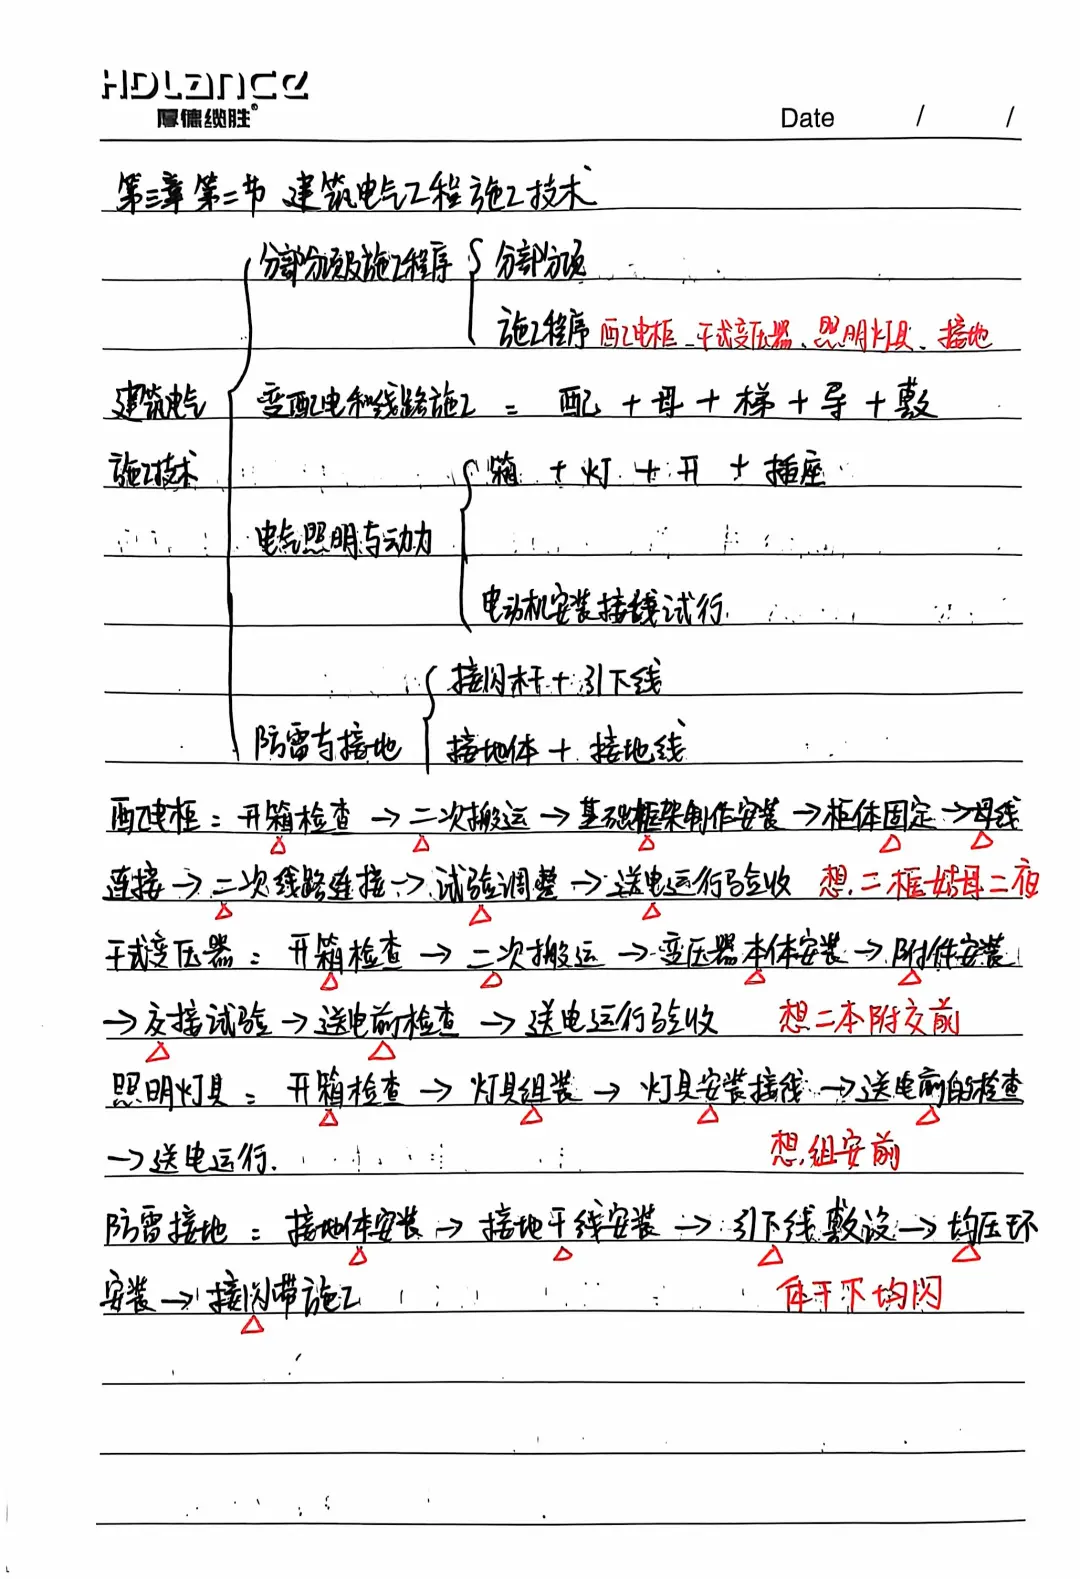 HDLANCE
厚德缆胜®
Date / /
第三章第二节 建筑电气工程施工技术
分部分项及施工程序 分部分项
施工程序 配电柜、干式变压器、照明灯具、接地
建筑电气 变配电和线路施工 = 配 + 母 + 梯 + 导 + 敷
施工技术 箱 + 灯 + 开 + 插座
电气照明与动力
电动机安装接线试行
接闪杆 + 引下线
防雷与接地 接地体 + 接地线
配电柜：开箱检查 → 二次搬运 → 基础框架制作安装 → 柜体固定 → 母线
连接 → 二次线路连接 → 试验调整 → 送电运行验收 想.二框姑母二夜
干式变压器：开箱检查 → 二次搬运 → 变压器本体安装 → 附件安装
→ 交接试验 → 送电前检查 → 送电运行验收 想二本附交前
照明灯具：开箱检查 → 灯具组装 → 灯具安装接线 → 送电前的检查
→ 送电运行. 想.组安前
防雷接地：接地体安装 → 接地干线安装 → 引下线敷设 → 均压环
安装 → 接闪带施工 体干下均闪